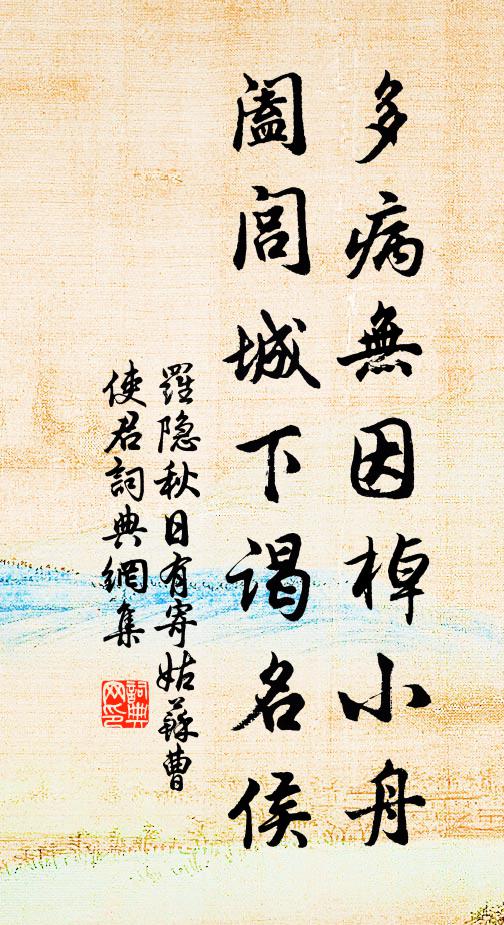 多病無因棹小舟
闔閭城下谒名侯
羅隐秋日有寄姑蘇曹
使君詞典網集
詞典网印